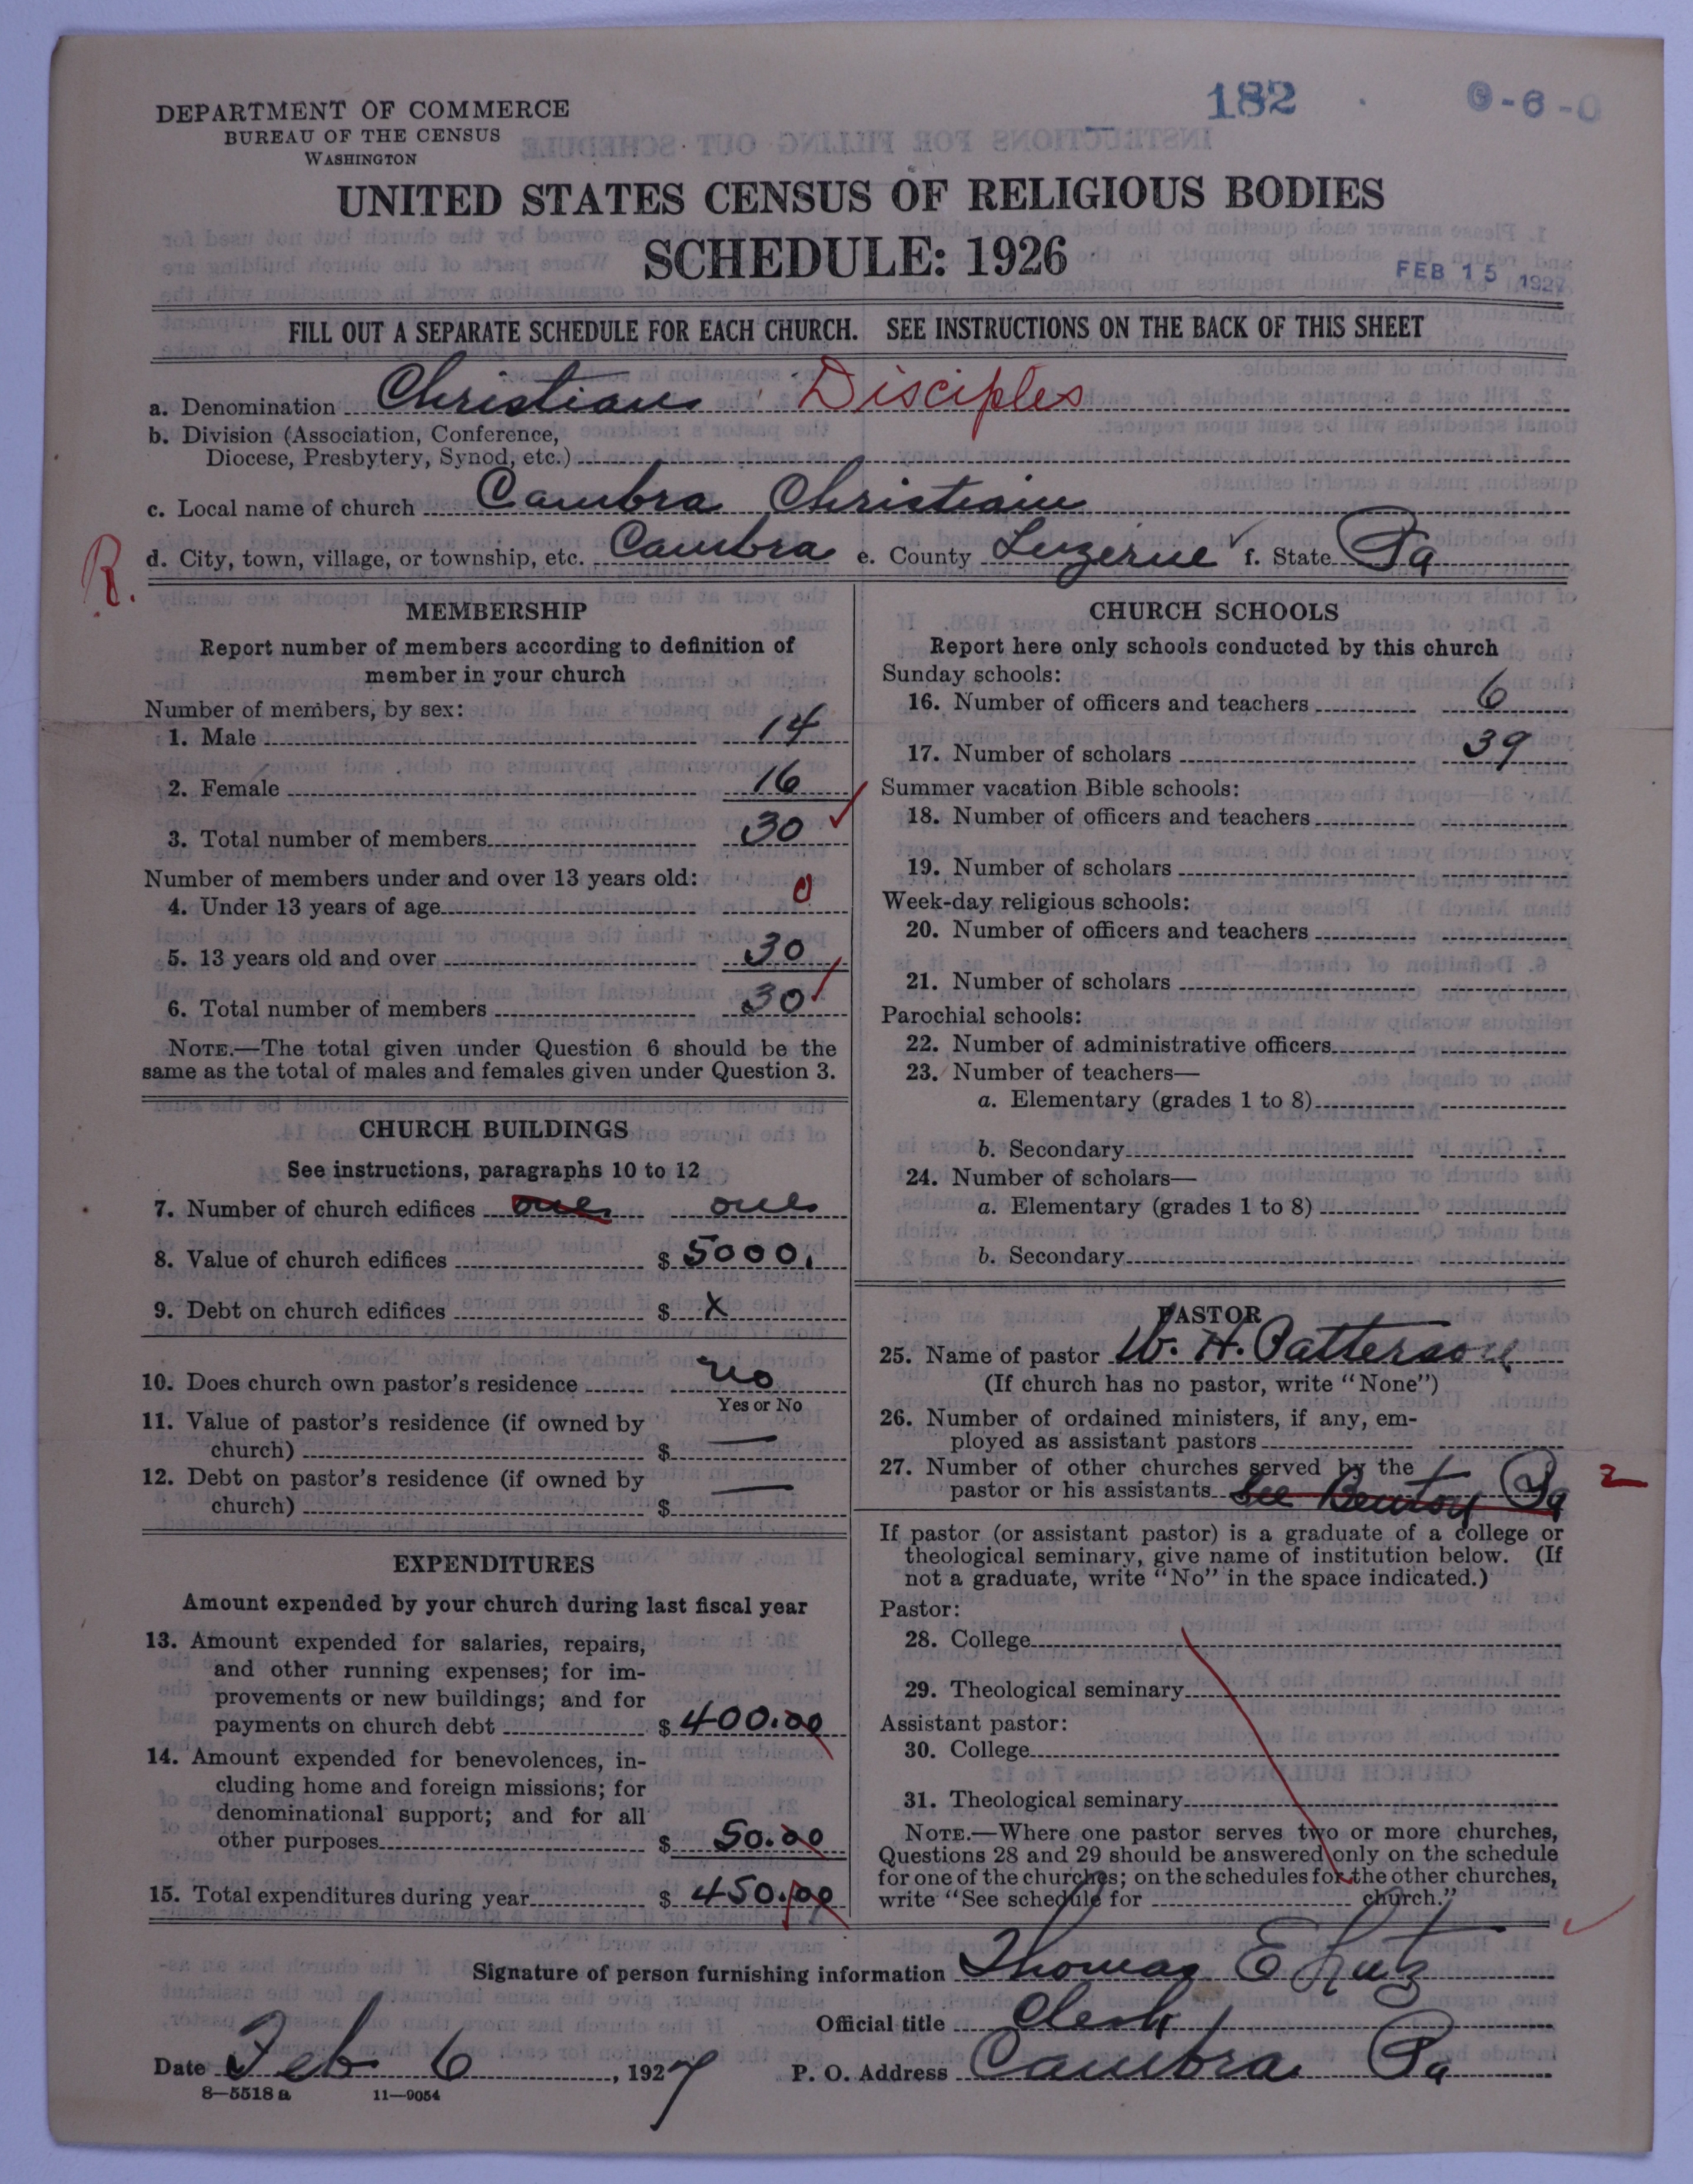 182
DEPARTMENT OF COMMERCE
BUREAU OF THE CENSUS
WASHINGTON
UNITED STATES CENSUS OF RELIGIOUS BODIES
SCHEDULE: 1926
FEB 15 1927
FILL OUT A SEPARATE SCHEDULE FOR EACH CHURCH. SEE INSTRUCTIONS ON THE BACK OF THIS SHEET
a. Denomination Christian Disciples
b. Division (Association, Conference,
Diocese, Presbytery, Synod, etc.)
c. Local name of church Cambra Christian
R. d. City, town, village, or township, etc. Cambra e. County Luzerne f. State Pa
MEMBERSHIP
Report number of members according to definition of
member in your church
Number of members, by sex:
1. Male 14
2. Female 16
3. Total number of members 30
Number of members under and over 13 years old:
4. Under 13 years of age 0
5. 13 years old and over 30
6. Total number of members 30
NOTE.—The total given under Question 6 should be the
same as the total of males and females given under Question 3.
CHURCH BUILDINGS
See instructions, paragraphs 10 to 12
7. Number of church edifices one one
8. Value of church edifices $ 5000.
9. Debt on church edifices $ x
10. Does church own pastor's residence no
Yes or No
11. Value of pastor's residence (if owned by
church) $ —
12. Debt on pastor's residence (if owned by
church) $ —
EXPENDITURES
Amount expended by your church during last fiscal year
13. Amount expended for salaries, repairs,
and other running expenses; for im-
provements or new buildings; and for
payments on church debt $ 400.00
14. Amount expended for benevolences, in-
cluding home and foreign missions; for
denominational support; and for all
other purposes $ 50.00
15. Total expenditures during year $ 450.00
CHURCH SCHOOLS
Report here only schools conducted by this church
Sunday schools:
16. Number of officers and teachers 6
17. Number of scholars 39
Summer vacation Bible schools:
18. Number of officers and teachers
19. Number of scholars
Week-day religious schools:
20. Number of officers and teachers
21. Number of scholars
Parochial schools:
22. Number of administrative officers
23. Number of teachers—
a. Elementary (grades 1 to 8)
b. Secondary
24. Number of scholars—
a. Elementary (grades 1 to 8)
b. Secondary
PASTOR
25. Name of pastor W. H. Patterson
(If church has no pastor, write "None")
26. Number of ordained ministers, if any, em-
ployed as assistant pastors
27. Number of other churches served by the
pastor or his assistants See Benton Pa 2
If pastor (or assistant pastor) is a graduate of a college or
theological seminary, give name of institution below. (If
not a graduate, write "No" in the space indicated.)
Pastor:
28. College
29. Theological seminary
Assistant pastor:
30. College
31. Theological seminary
NOTE.—Where one pastor serves two or more churches,
Questions 28 and 29 should be answered only on the schedule
for one of the churches; on the schedules for the other churches,
write "See schedule for church."
Signature of person furnishing information Thomas E
Official title Clerk
Date Feb 6, 1927 P. O. Address Cambra Pa
8—5518 a 11—9054